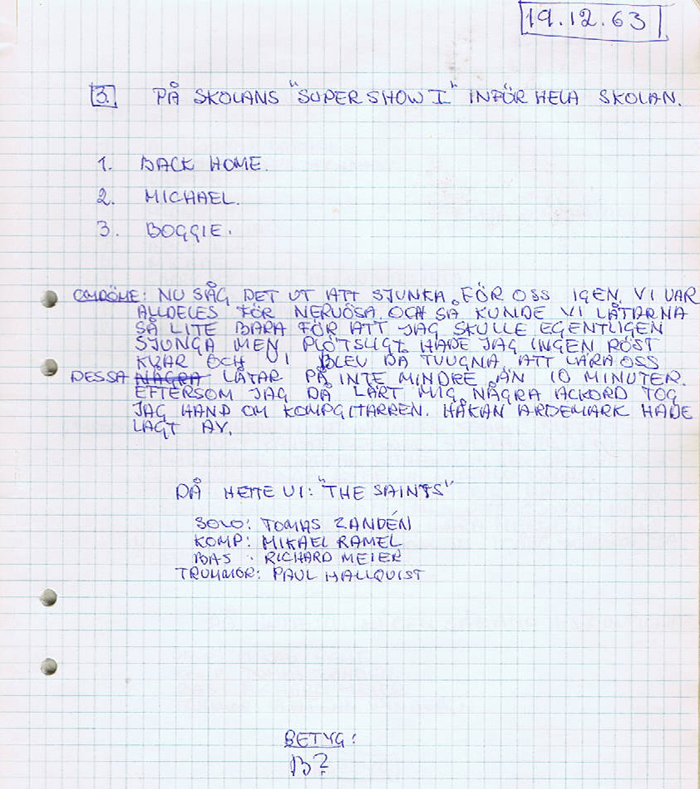 19.12.63
3. PÅ SKOLANS "SUPER SHOW I" INFÖR HELA SKOLAN.
1. BACK HOME.
2. MICHAEL.
3. BOGGIE.
OMDÖME: NU SÅG DET UT ATT SJUNKA FÖR OSS IGEN. VI VAR
ALLDELES FÖR NERVÖSA OCH SÅ KUNDE VI LÅTARNA
SÅ LITE BARA FÖR ATT JAG SKULLE EGENTLIGEN
SJUNGA MEN PLÖTSLIGT HADE JAG INGEN RÖST
KVAR OCH VI BLEV DÅ TVUGNA ATT LÄRA OSS
DESSA NÅGRA LÅTAR PÅ INTE MINDRE ÄN 10 MINUTER.
EFTERSOM JAG DÅ LÄRT MIG NÅGRA ACKORD TOG
JAG HAND OM KOMPGITARREN. HÅKAN ARDEMARK HADE
LAGT AV.
DÅ HETTE VI: "THE SAINTS"
SOLO: TOMAS ZANDÉN
KOMP: MIKAEL RAMEL
BAS : RICHARD MEIER
TRUMMOR: PAUL HALLQUIST
BETYG:
B?